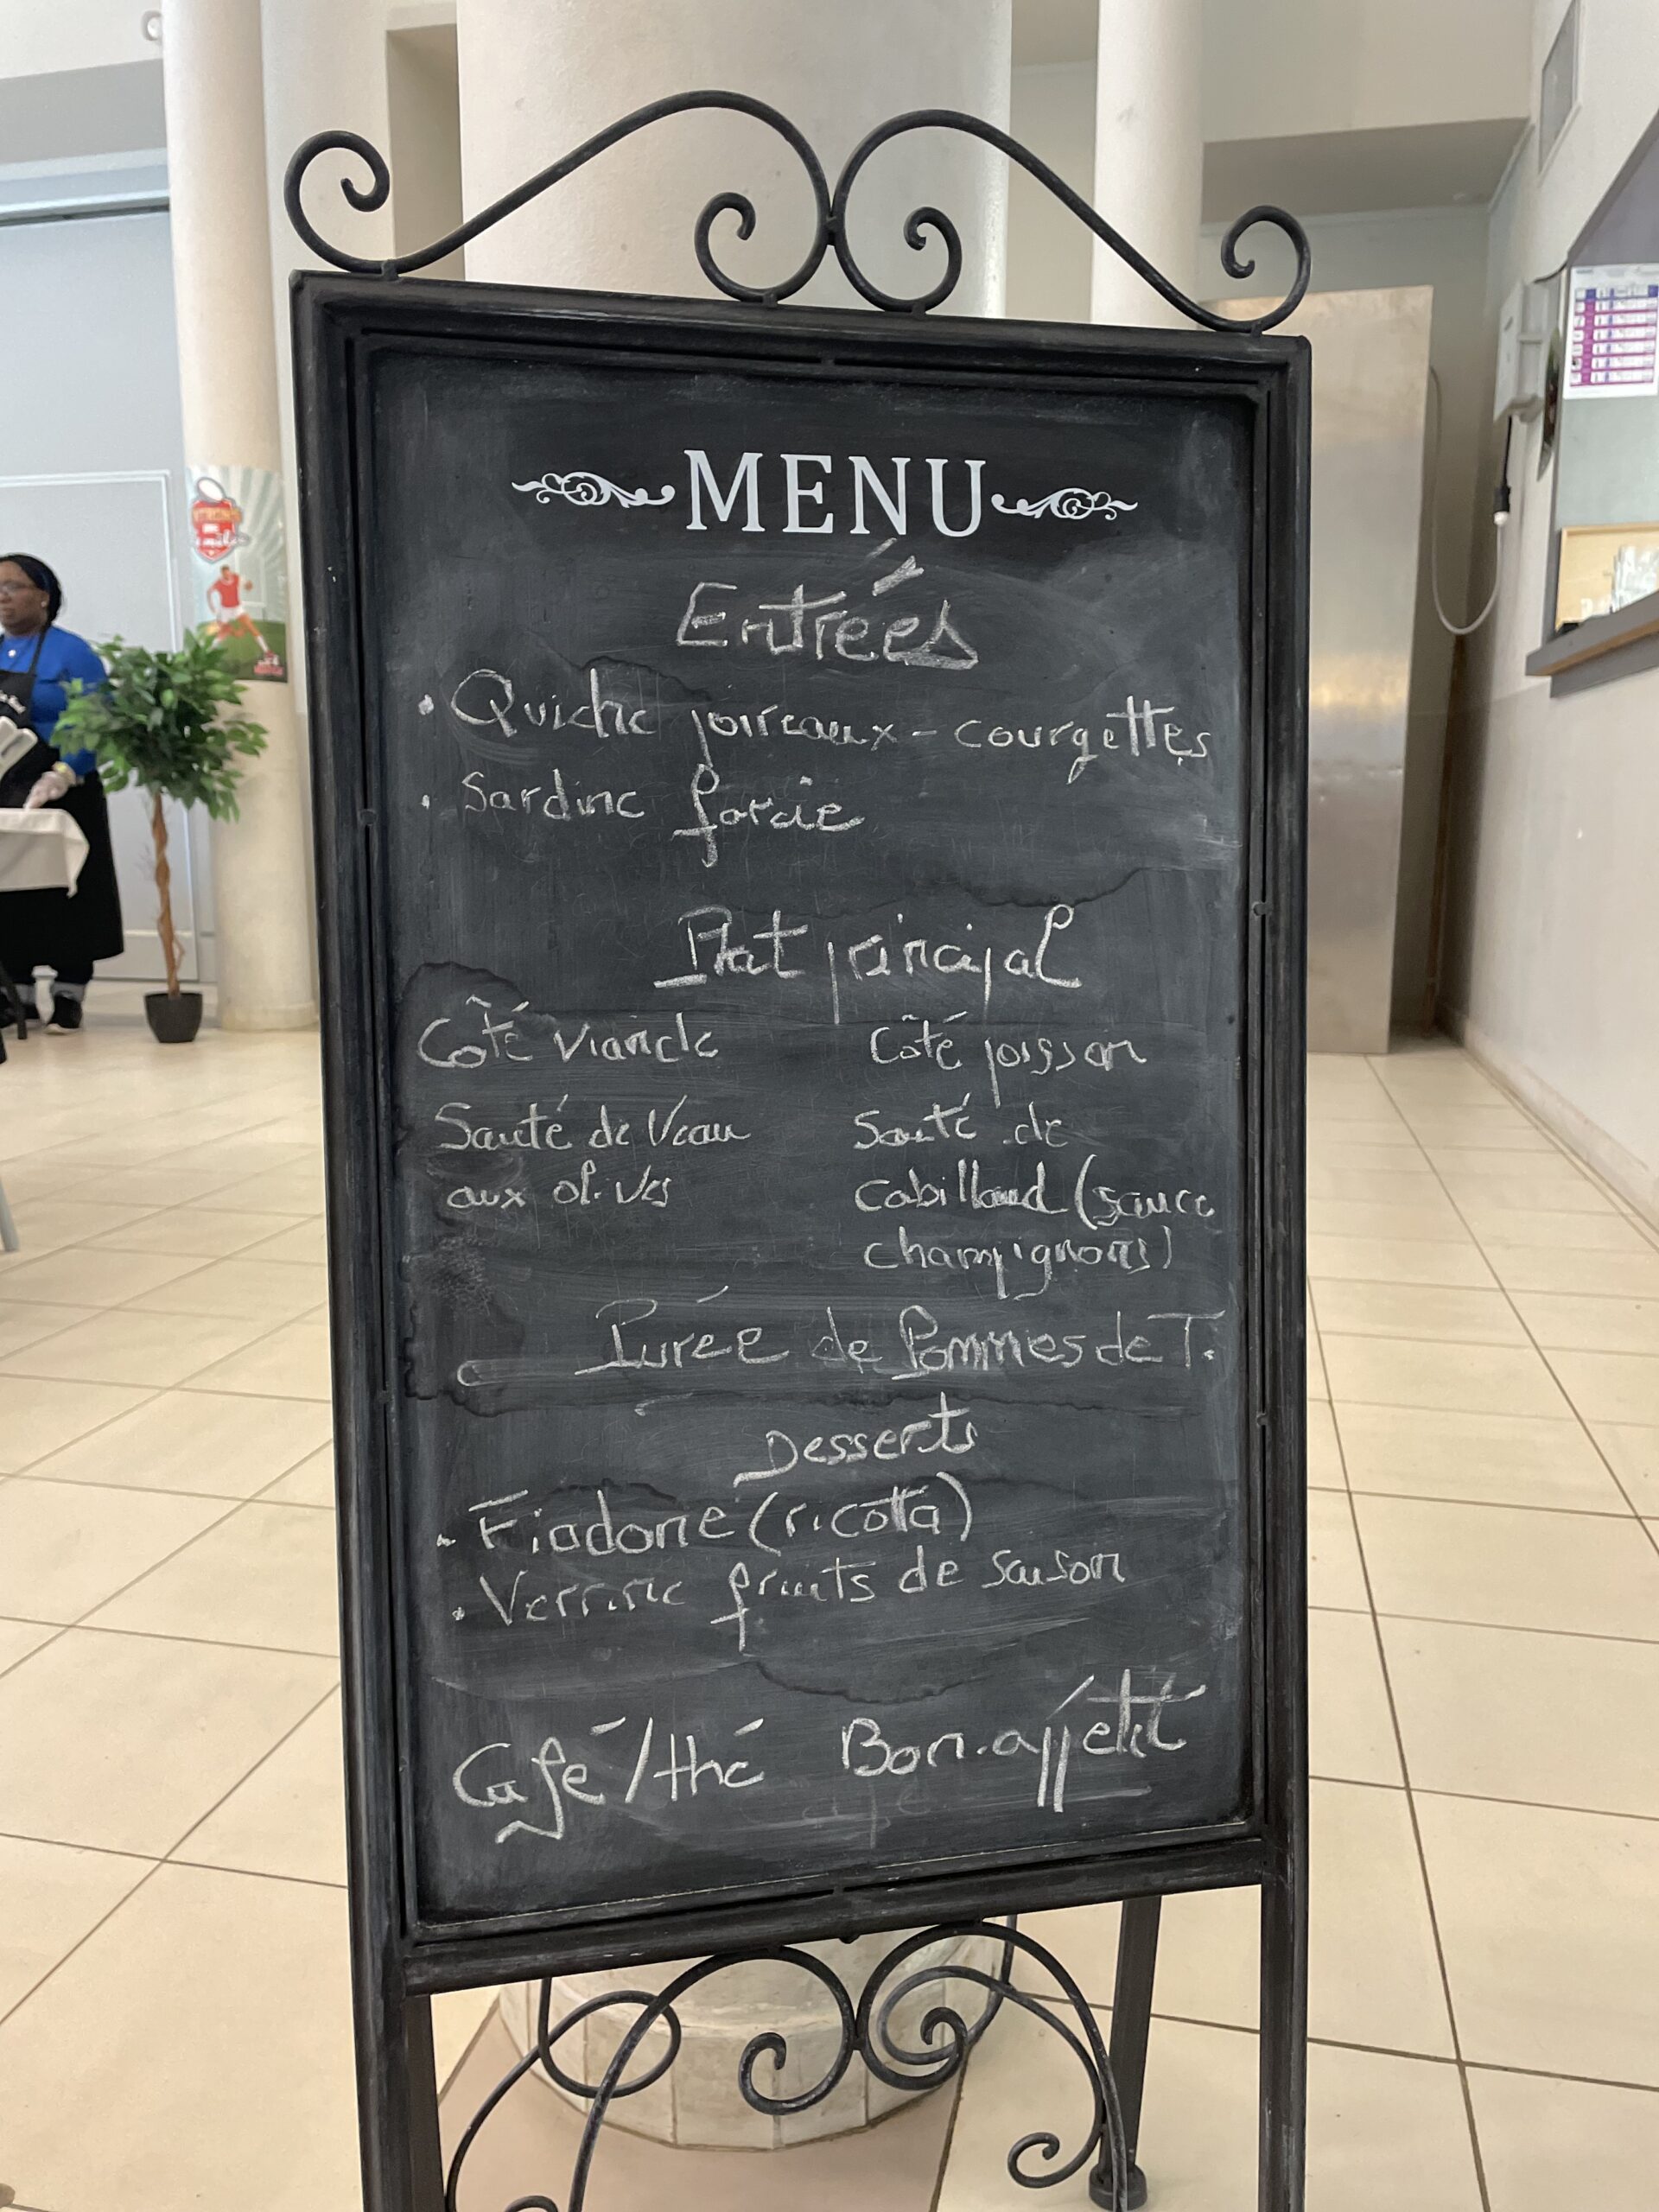 MENU
Entrées
• Quiche poireaux - courgettes
• Sardine farcie
Plat principal
Côté viande
Sauté de Veau
aux olives
Côté poisson
Sauté de
cabillaud (sauce
champignons)
Purée de Pommes de T.
Desserts
• Fiadone (ricotta)
• Verrine fruits de saison
Café/thé Bon appétit